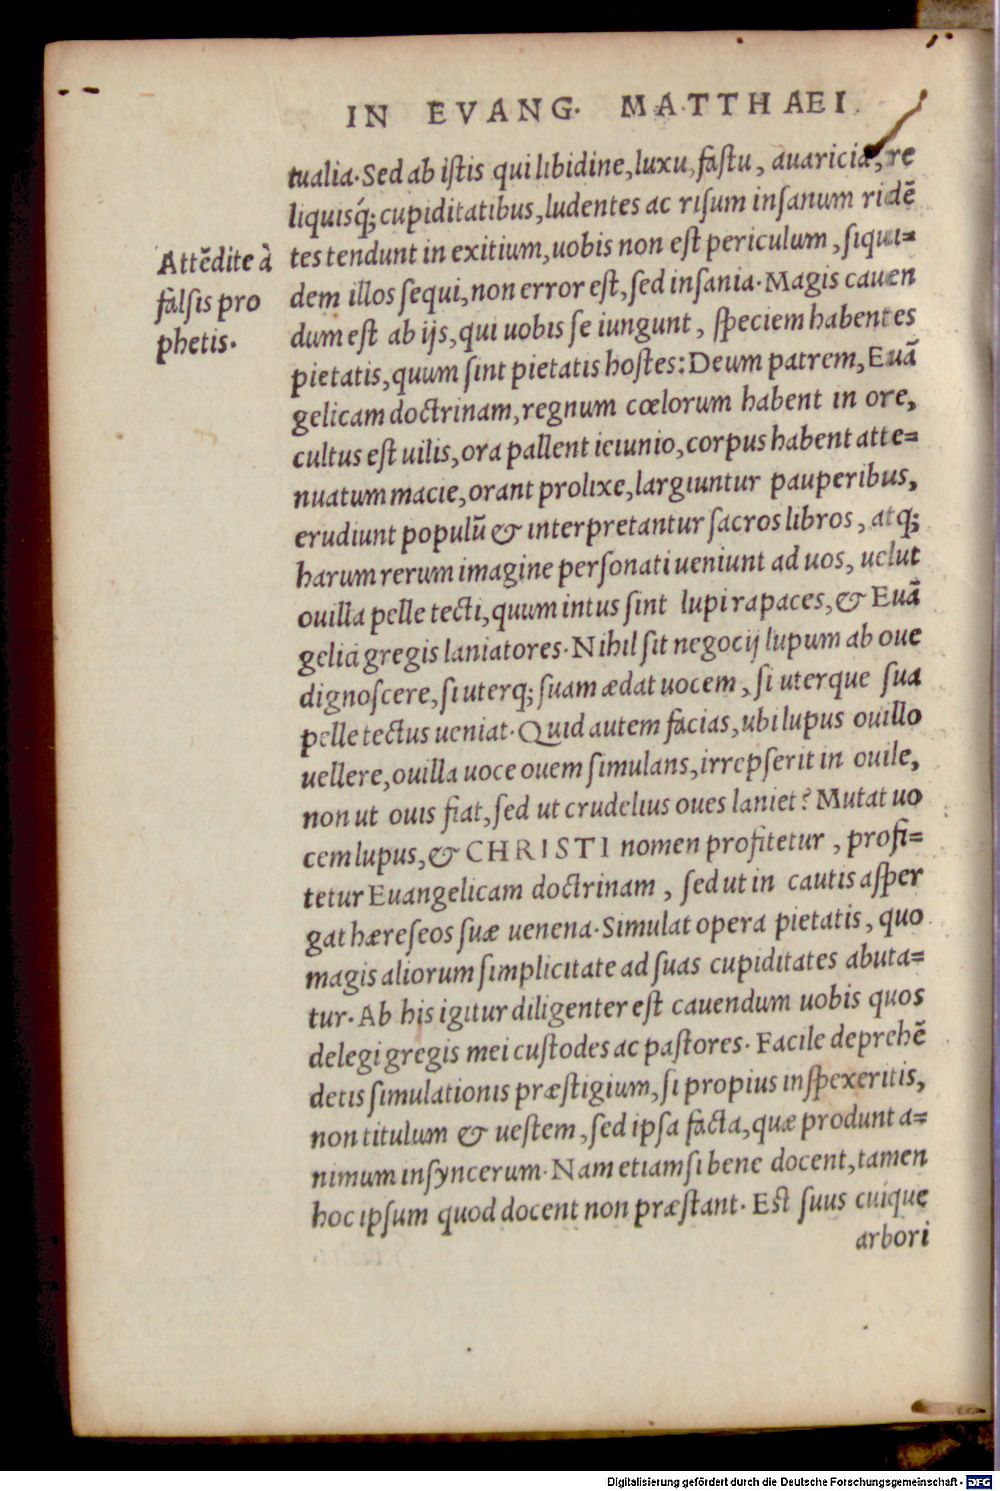 IN EVANG. MATTHAEI
tualia. Sed ab istis qui libidine, luxu, fastu, auaricia, re
liquisq́; cupiditatibus, ludentes ac risum insanum ridē
tes tendunt in exitium, uobis non est periculum, siqui=
dem illos sequi, non error est, sed insania. Magis cauen
dum est ab ijs, qui uobis se iungunt, speciem habentes
pietatis, quum sint pietatis hostes: Deum patrem, Euā
gelicam doctrinam, regnum cœlorum habent in ore,
cultus est uilis, ora pallent ieiunio, corpus habent atte=
nuatum macie, orant prolixe, largiuntur pauperibus,
erudiunt populū & interpretantur sacros libros, atq;
harum rerum imagine personati ueniunt ad uos, uelut
ouilla pelle tecti, quum intus sint lupi rapaces, & Euā
gelici gregis laniatores. Nihil sit negocij lupum ab oue
dignoscere, si uterq; suam ædat uocem, si uterque sua
pelle tectus ueniat. Quid autem facias, ubi lupus ouillo
uellere, ouilla uoce ouem simulans, irrepserit in ouile,
non ut ouis fiat, sed ut crudelius oues laniet? Mutat uo
cem lupus, & CHRISTI nomen profitetur, profi=
tetur Euangelicam doctrinam, sed ut in cautis asper
gat hæreseos suæ uenena. Simulat opera pietatis, quo
magis aliorum simplicitate ad suas cupiditates abuta=
tur. Ab his igitur diligenter est cauendum uobis quos
delegi gregis mei custodes ac pastores. Facile deprehē
detis simulationis præstigium, si propius inspexeritis,
non titulum & uestem, sed ipsa facta, quæ produnt a=
nimum insyncerum. Nam etiamsi bene docent, tamen
hoc ipsum quod docent non præstant. Est suus cuique
arbori
Attēdite à
falsis pro
phetis.
Digitalisierung gefördert durch die Deutsche Forschungsgemeinschaft - DFG